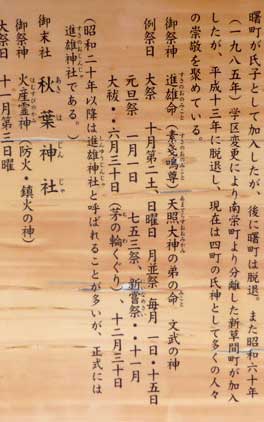 曙町が氏子として加入したが、後に曙町は脱退。また昭和六十年
（一九八五年）学区変更により南栄町より分離した新草間町が加入
したが、平成十三年に脱退し、現在は四町の氏神として多くの人々
の崇敬を集めている。
御祭神　進雄命（素戔嗚尊）天照大神の弟の命　文武の神
例祭日　大祭　十月第二土、日曜日　月並祭　毎月　一日・十五日
元旦祭　一月一日　七五三祭　新嘗祭・・十一月
大祓・・六月三十日（茅の輪くぐり）、十二月三十日
（昭和二十年以降は進雄神社と呼ばれることが多いが、正式には
進雄神社である。）
御末社　秋葉神社
御祭神　火産霊神（防火・鎮火の神）
大祭日　十一月第三日曜